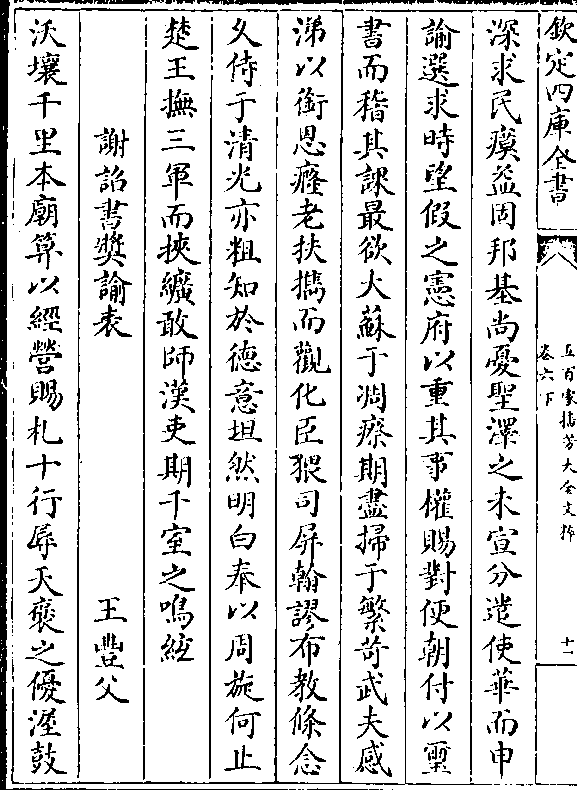 欽定四庫全書
五百家播芳大全文粹
卷六下
十一
深求民瘼益固邦基尚憂聖澤之未宣分遣使華而申
論選求時望假之憲府以重其事權賜對便朝付以璽
書而稽其課最欲大蘇于凋瘵期盡掃于繁苛武夫感
涕以銜恩癃老扶攜而觀化臣猥司屏翰謬布教條念
久侍于清光亦粗知於德意坦然明白奉以周旋何止
楚王撫三軍而挾纊敢師漢吏期千室之鳴絃
謝詔書奬諭表
王豐父
沃壤千里本廟算以經營賜札十行辱天襃之優渥鼓